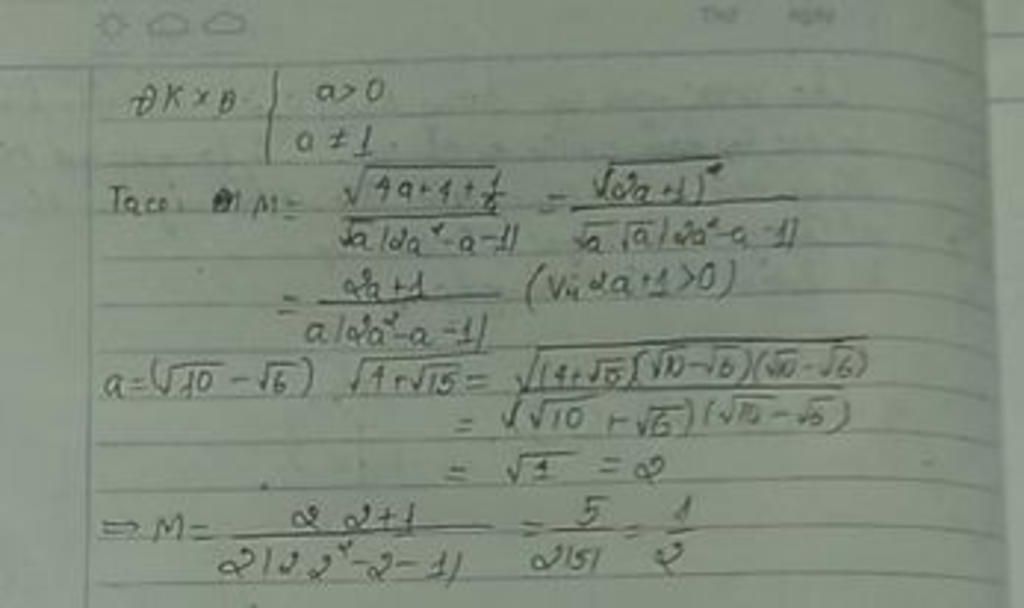 ĐKXĐ { a > 0
a ≠ 1
Ta có: M = √(4a+4+1/a) / (√a |2a²-a-1|) = √(2a+1)² / (√a √a |2a²-a-1|)
= (2a+1) / (a |2a²-a-1|) (Vì 2a+1 > 0)
a = (√10 - √6) √(4+√15) = √((4+√15)(√10-√6)(√10-√6))
= √((√10 + √6)(√10 - √6))
= √4 = 2
⇒ M = (2.2+1) / (2 |2.2²-2-1|) = 5 / (2|5|) = 1/2